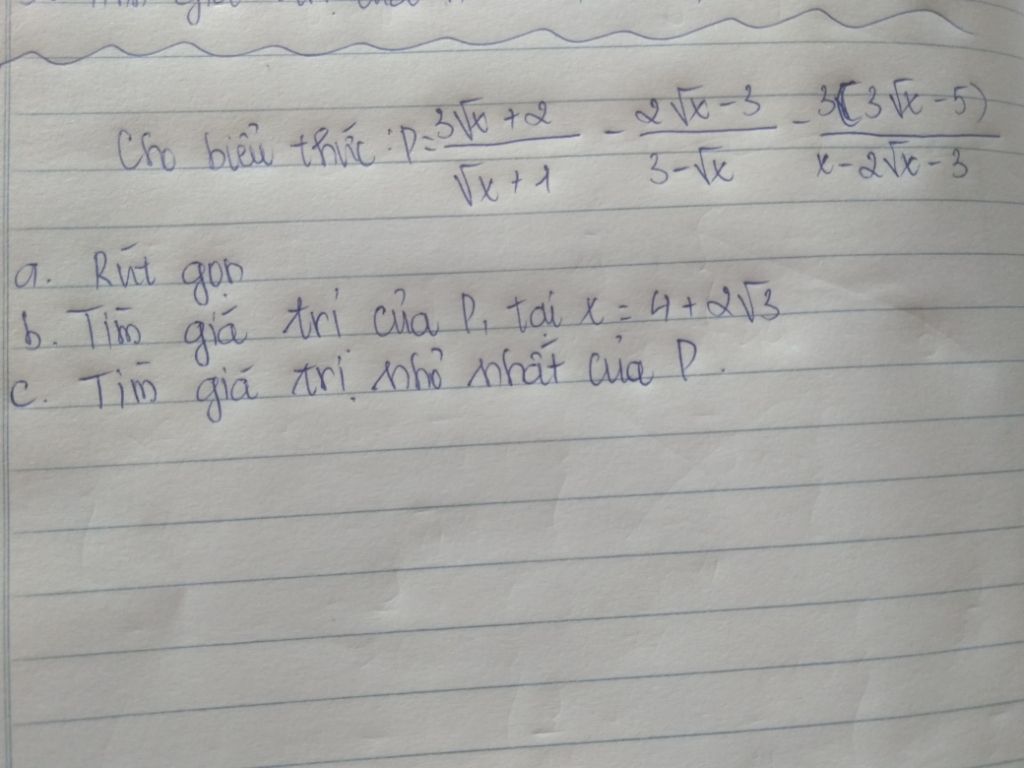 Cho biểu thức: P = \frac{3\sqrt{x}+2}{\sqrt{x}+1} - \frac{2\sqrt{x}-3}{3-\sqrt{x}} - \frac{3(3\sqrt{x}-5)}{x-2\sqrt{x}-3}
a. Rút gọn
b. Tìm giá trị của P, tại x = 4 + 2√3
c. Tìm giá trị nhỏ nhất của P.